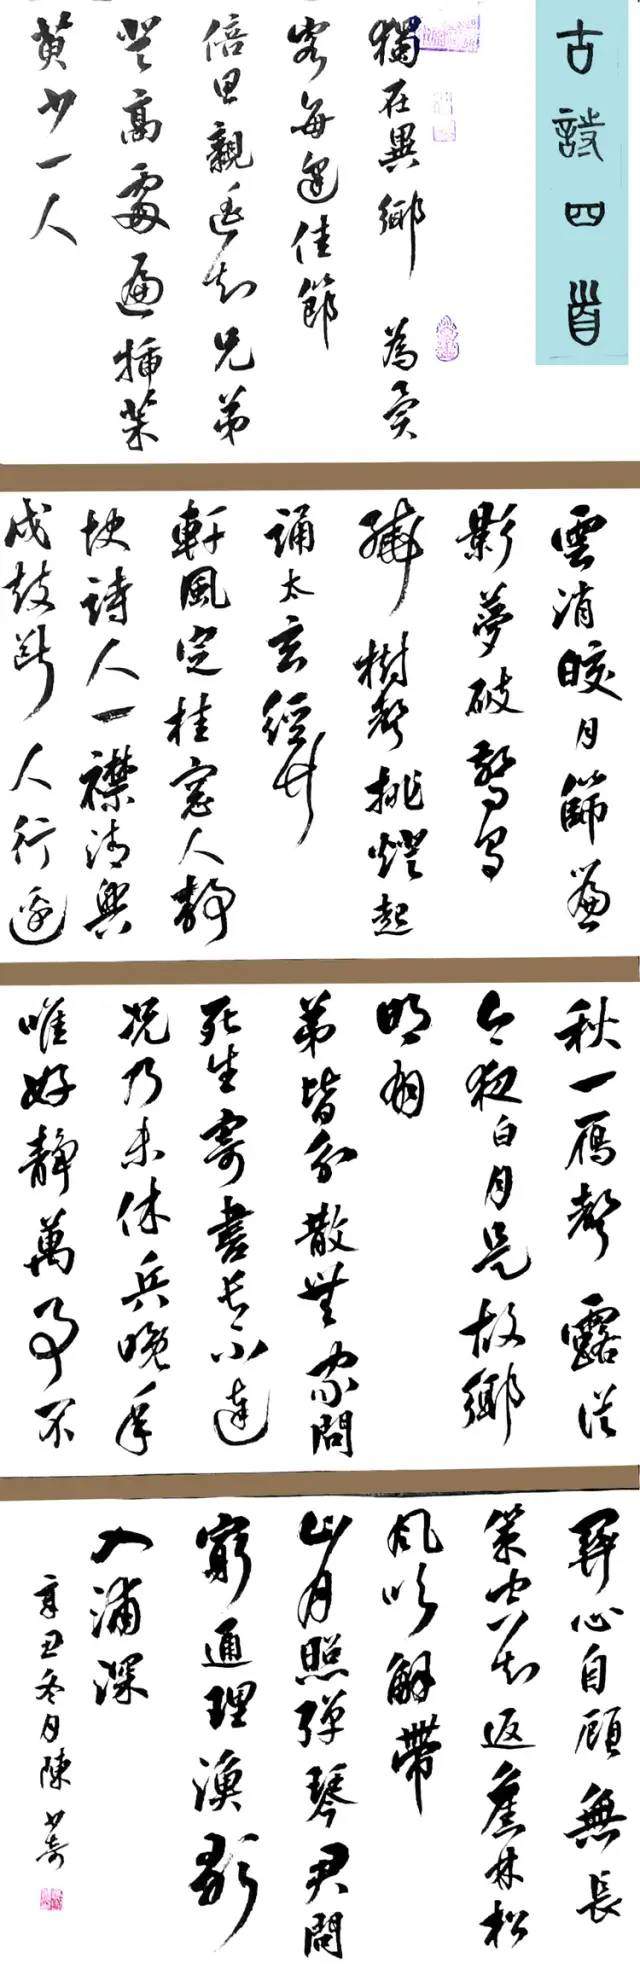 古詩四首
獨在異鄉為異
客每逢佳節
倍思親遙知兄弟
登高處遍插茱
萸少一人
雲消皎月篩簾
影夢破驚烏
繞樹聲挑燈起
誦太玄經竹
軒風定桂窗人靜
快詩人一襟清興
戍鼓斷人行邊
秋一雁聲露從
今夜白月是故鄉
明有
弟皆分散無家問
死生寄書長不達
況乃未休兵晚年
唯好靜萬事不
關心自顧無長
策空知返舊林松
風吹解帶
山月照彈琴君問
窮通理漁歌
入浦深
辛丑冬月陳